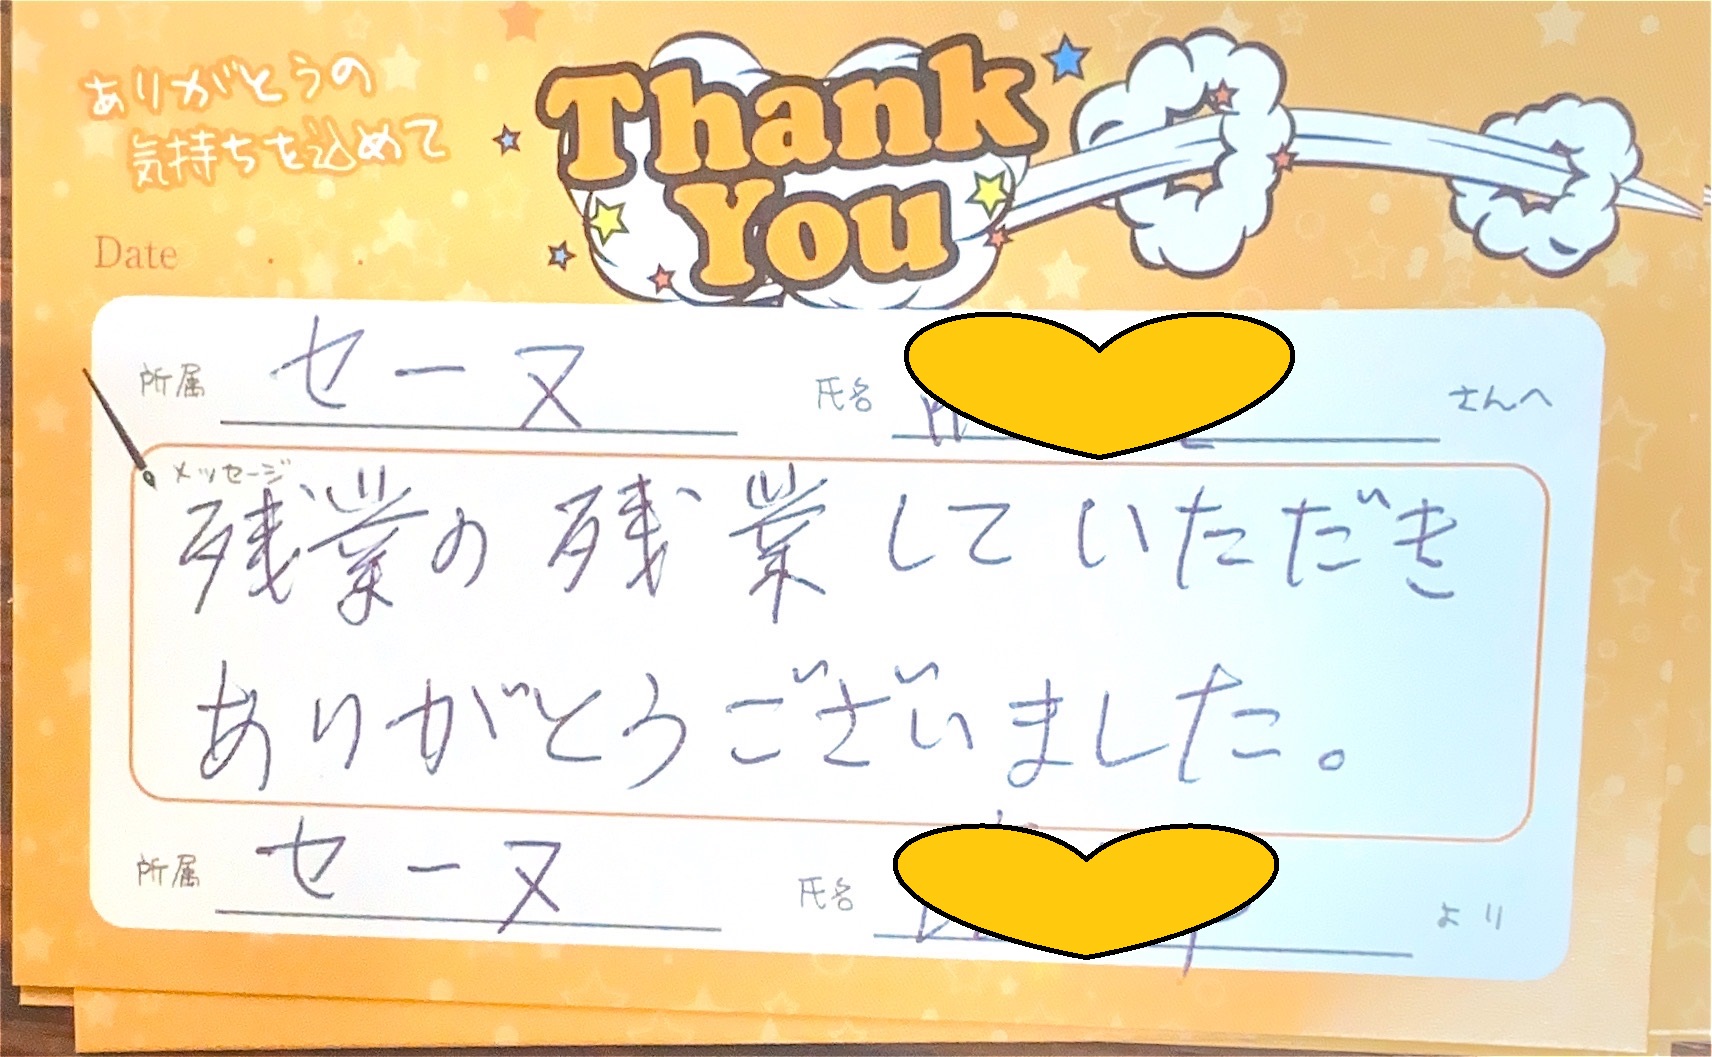 ありがとうの
気持ちを込めて
Thank
You
Date . .
所属 セーヌ 氏名 さんへ
メッセージ
残業の残業していただき
ありがとうございました。
所属 セーヌ 氏名 より